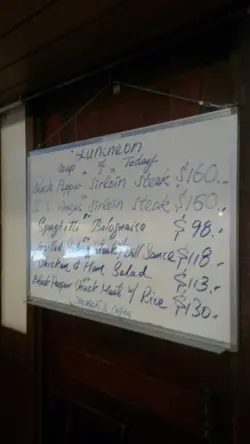 Luncheon
Soup " of " Today
Black Pepper Sirloin Steak $160.-
U.S. Angus Sirloin Steak $150.-
Spaghetti Bolognaise $98.-
Grilled w/ Dill Sauce $118.-
Chicken & Ham Salad $113.-
Black Pepper Duck Meat w/ Rice $130.-